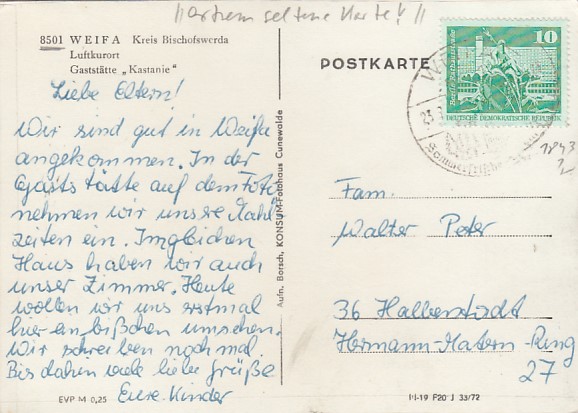 "extrem seltene Karte!"
8501 WEIFA Kreis Bischofswerda
Luftkurort
Gaststätte „Kastanie"
Liebe Eltern!
Wir sind gut in Weifa
angekommen. In der
Gaststätte auf dem Foto
nehmen wir unsere Mahl
zeiten ein. Im gleichen
Haus haben wir auch
unser Zimmer. Heute
wollen wir uns erstmal
hier ein bißchen umsehen.
Wir schreiben noch mal.
Bis dahin viele liebe Grüße
Eure Kinder
EVP M 0,25
Aufn. Borsch, KONSUM-Fotohaus Cunewalde
POSTKARTE
10
Berlin, Rathausstraße
DEUTSCHE DEMOKRATISCHE REPUBLIK
1843
Fam.
Walter Peter
36 Halberstadt
Hermann-Matern-Ring
27
III-19 F20 J 33/72